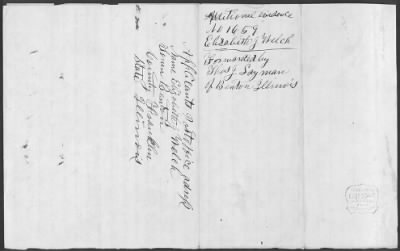 Additional evidence
No 1659
Elizabeth J Welch
Forwarded by
Thos J Layman
of Benton Illinois
Applicants P Office adress
Name Elizabeth J Welch
Town Benton
County Franklin
State Illinois